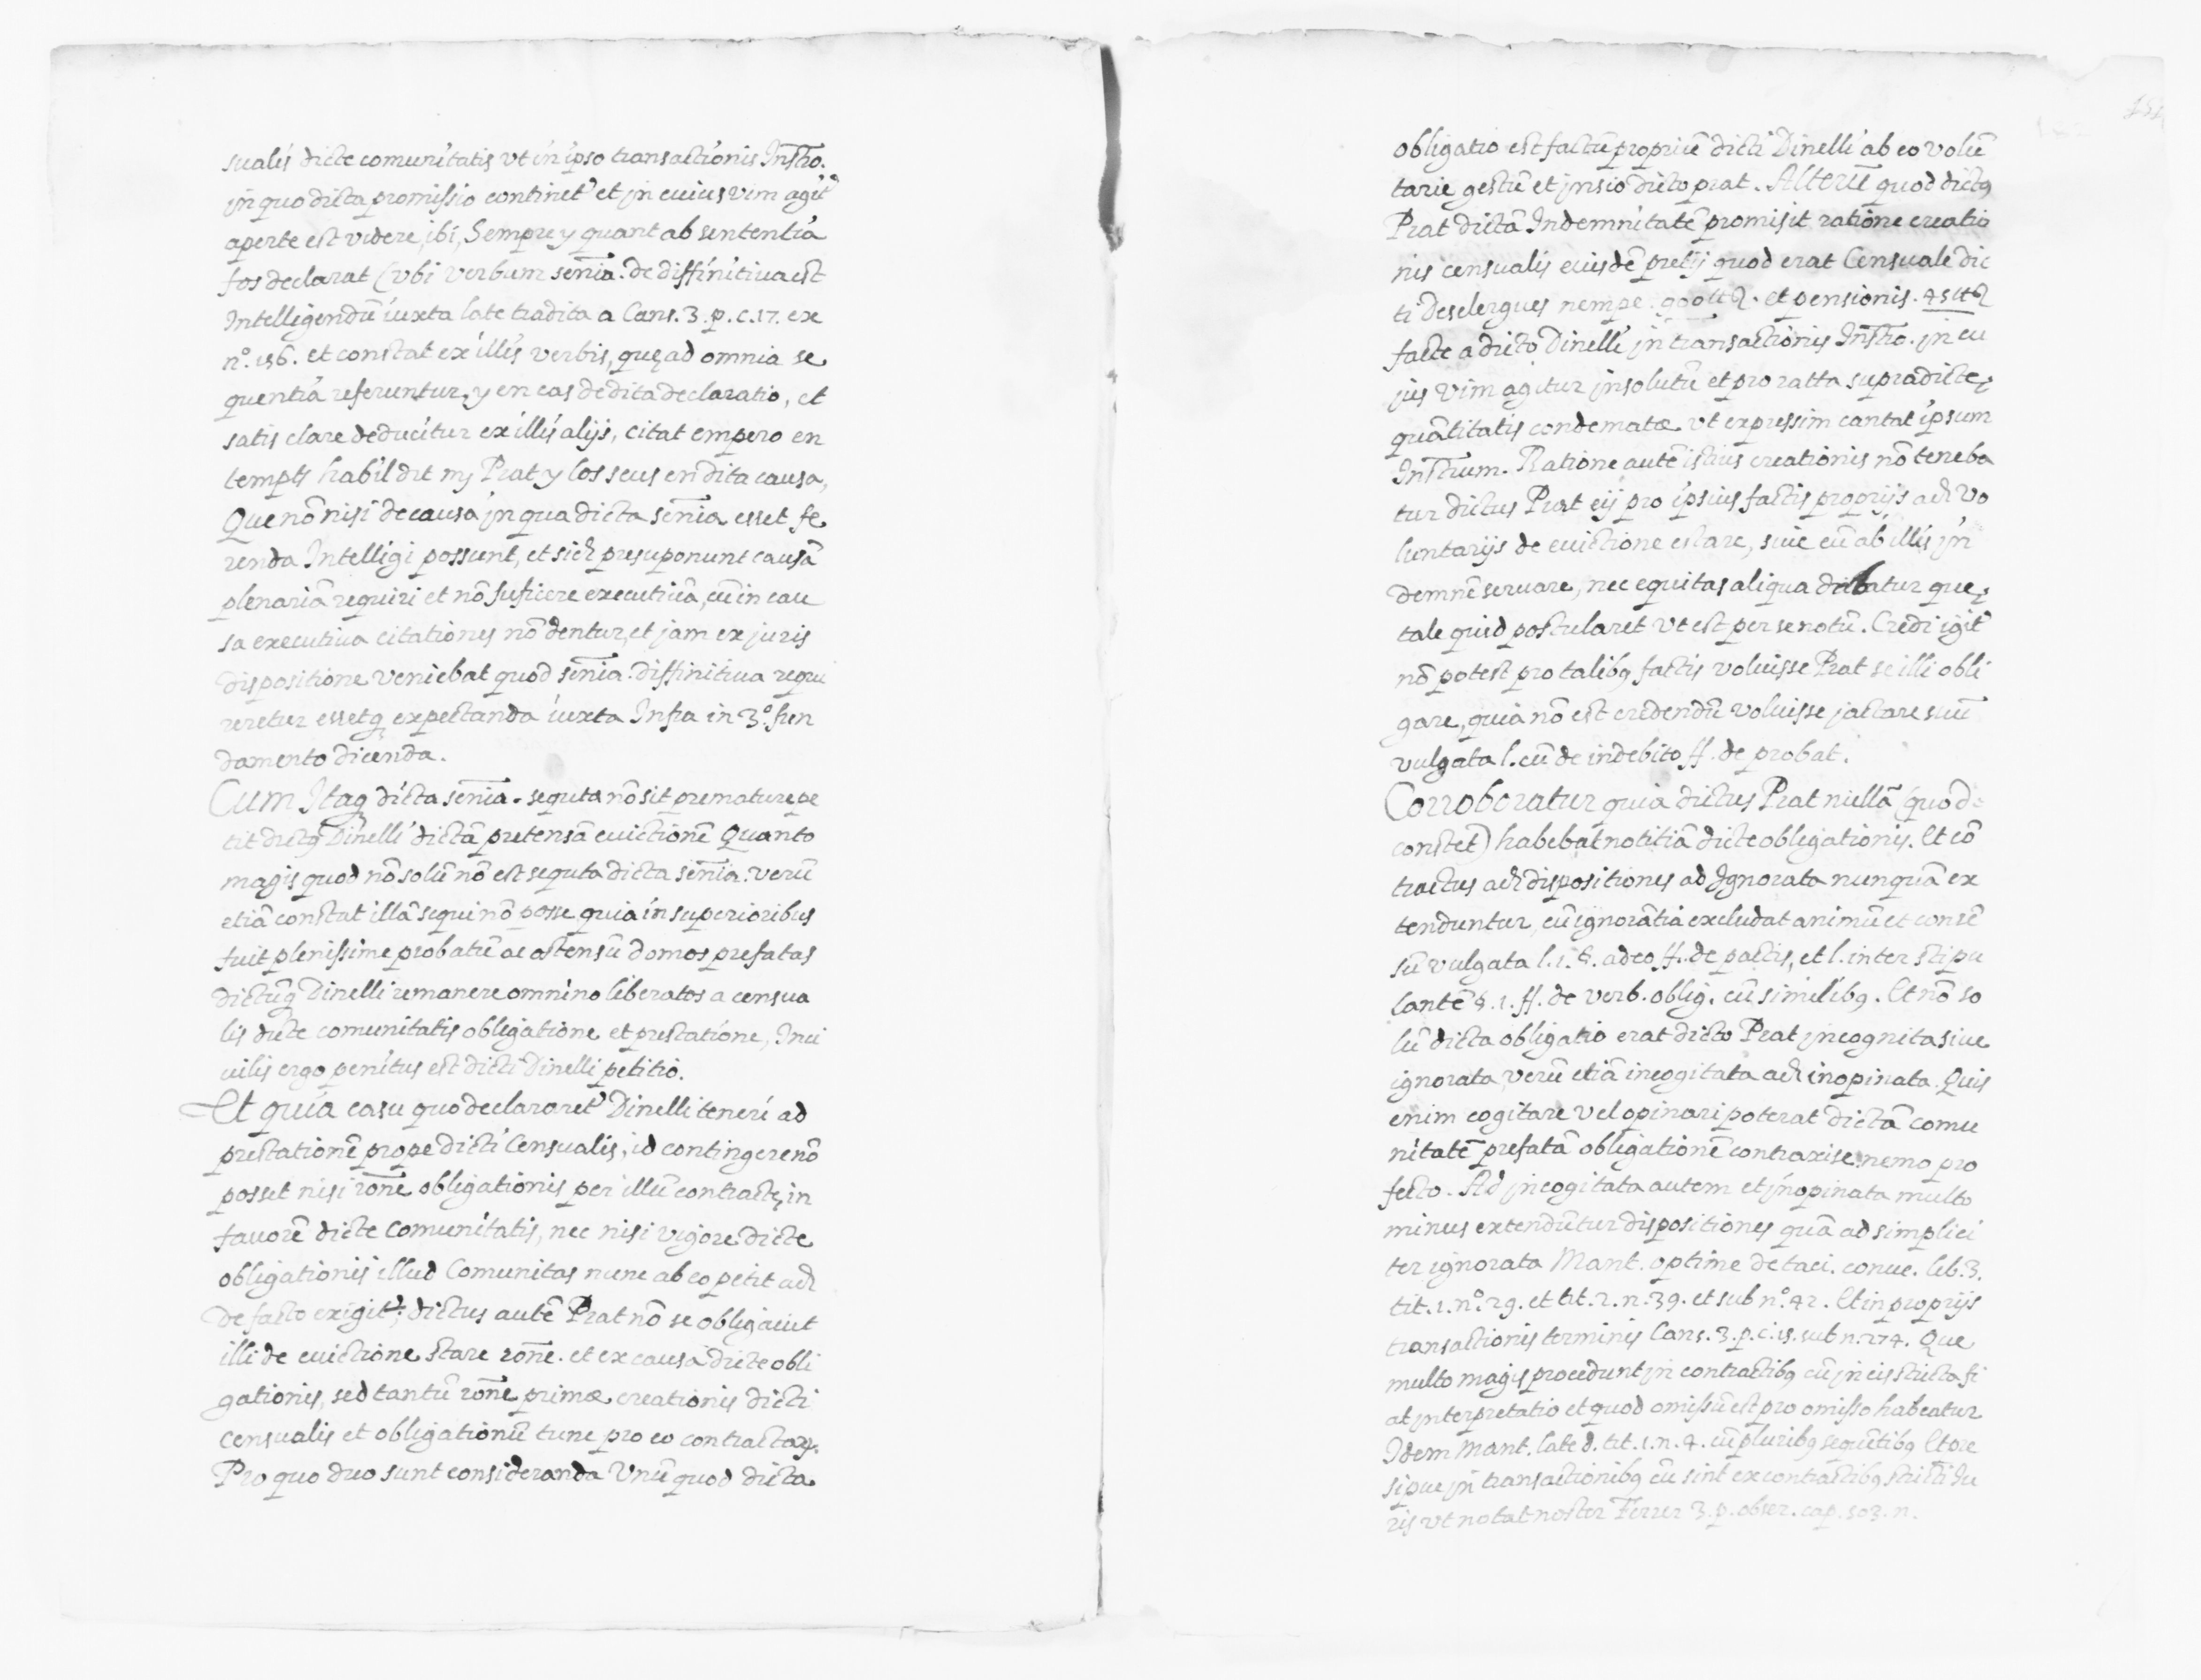 sualis dicte comunitatis vt in ipso transactionis Instro.
in quo dicta promissio continet^r et jn cuius vim agit^r
aperte est videre, ibi, Sempre y quant ab sententia
fos declarat (vbi verbum senīa. de diffinitiua est
Intelligendū iuxta late tradita a Cans. 3. p. c. 17. ex
n°. 156. et constat ex illis verbis, quę ad omnia se
quentia referuntur, y en cas de dita declaratio, et
satis clare deducitur ex illis alijs, citat empero en
temps habil dit mj Prat y los seus en dita causa,
Que nō nisi de causa jn qua dicta senīa esset fe
renda Intelligi possunt, et sic presuponunt causā
plenariā requiri et nō suficere executiuā, cū in cau
sa executiua citationes nō dentur, et jam ex juris
dispositione veniebat quod senīa. diffinitiua requi
reretur essetq expectanda iuxta Infra in 3°. fun
damento dicenda.
Cum Itaq dicta senīa. sequta nō sit premature pe
tit dictꝯ Dinelli dictā pretensā euictionē Quanto
magis quod nō solū nō est sequta dicta senīa. verū
etiā constat illā sequi nō posse quia in superioribus
fuit plenissime probatū ac ostensū domos prefatas
dictūq Dinelli remanere omnino liberatos a censua
lis dicte comunitatis obligatione et prestatione, Inci
uilis ergo penitus est dicti Dinelli petitio.
Et quia casu quo declararet^r Dinelli teneri ad
prestationē prope dicti Censualis, id contingere nō
posset nisi rōne obligationis per illū contractę in
fauorē dicte Comunitatis, nec nisi vigore dicte
obligationis illud Comunitas nunc ab eo petit ac
de facto exigit; dictus autē Prat nō se obligauit
illi de euictione stare rōne. et ex causa dicte obli
gationis, sed tantū rōne primæ creationis dicti
Censualis et obligationū tunc pro eo contractaꝝ.
Pro quo duo sunt consideranda Vnū quod dicta
obligatio est factū propriū dicti Dinelli ab eo volū
tarie gestū et jnscio dicto prat. Alterū quod dictꝯ
Prat dictā Indemnitatē promisit ratione creatio
nis censualis eiusdē pretij quod erat Censuale dic
ti Desclergues nempe. 900 ₶. et pensionis. 45 ₶
facte a dicto Dinelli jn transactionis Instro. jn cu
jus vim agitur jnsolutū et pro ratta supradicte
quātitatis condematæ vt expressim cantat ipsum
Instrum. Ratione autē istius creationis nō teneba
tur dictus Prat eij pro ipsius factis proprijs ac vo
luntarijs de euictione estare, siue eū ab illis jn
demnē seruare, nec equitas aliqua dabatur que
tale quid postularet vt est per se notū. Credi igit^r
nō potest pro talibꝯ factis voluisse Prat se illi obli
gare, quia nō est credendū voluisse jactare suū
vulgata l. cū de indebito ff. de probat.
Corroboratur quia dictus Prat nullā (quod
constet) habebat notitiā dicte obligationis. Et cō
tractus ac dispositiones ad Ignorata nunquā ex
tenduntur, cū ignorātia excludat animū et consē
sū vulgata l. 1. §. adeo ff. de pactis, et l. inter stipu
lantē §. 1. ff. de verb. oblig. cū similibꝯ. Et nō so
lū dicta obligatio erat dicto Prat jncognita siue
ignorata, verū etiā incogitata ac inopinata. Quis
enim cogitare vel opinari poterat dictā comu
nitatē prefatā obligationē contraxise. nemo pro
fecto. Ad jncogitata autem et jnopinata multo
minus extendūtur dispositiones quā ad simplici
ter ignorata Mant. optime de taci. conue. lib. 3.
tit. 1. n°. 29. et tit. 2. n. 39. et sub n°. 42. Et in proprijs
transactionis terminis Cans. 3. p. c. 15. sub n. 274. Que
multo magis procedunt jn contractibꝯ cū jn eis stricta fi
at jnterpretatio et quod omissū est pro omisso habeatur
Idem Mant. late d. tit. 1. n. 4. cū pluribꝯ sequētibꝯ Et pre
sipue jn transactionibꝯ cū sint ex contractibꝯ stricti Ju
ris vt notat noster Ferrer 3. p. obser. cap. 503. n.